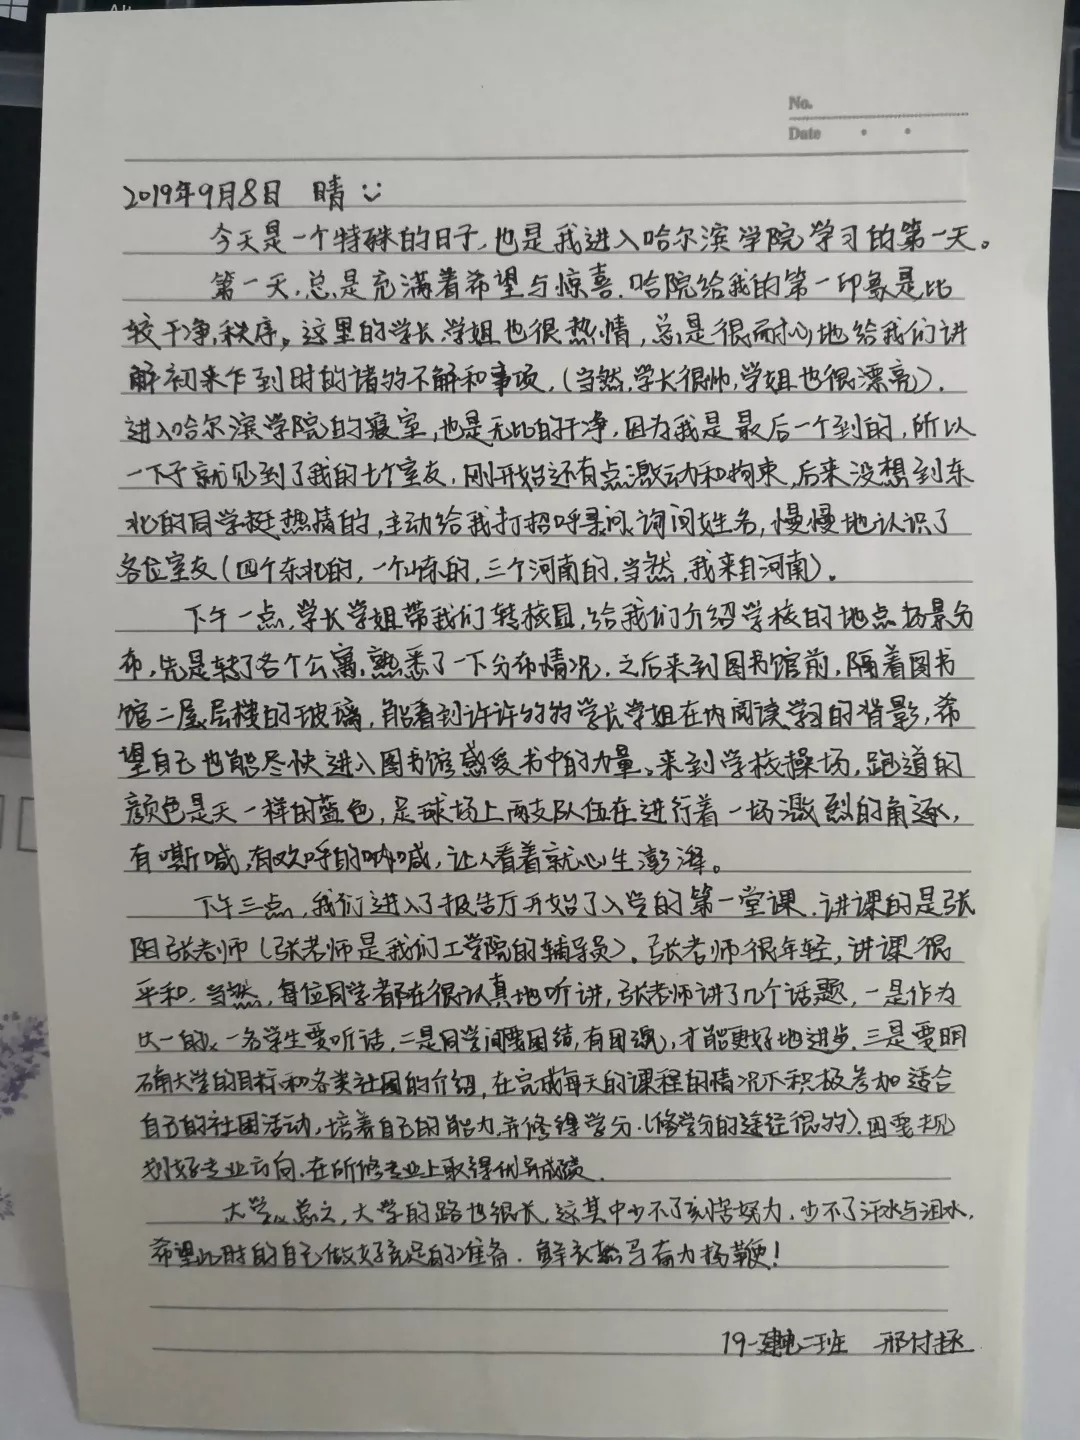 No.
Date
2019年9月8日 晴
今天是一个特殊的日子,也是我进入哈尔滨学院学习的第一天。
第一天,总是充满着希望与惊喜.哈院给我的第一印象是比
较干净,秩序。这里的学长、学姐也很热情,总是很耐心地给我们讲
解初来乍到时的诸多不解和事项,(当然,学长很帅,学姐也很漂亮).
进入哈尔滨学院的寝室,也是无比的干净,因为我是最后一个到的,所以
一下子就见到了我的七个室友,刚开始还有点激动和拘束,后来没想到东
北的同学挺热情的,主动给我打招呼寻问,询问姓名,慢慢地认识了
各位室友(四个东北的,一个山东的,三个河南的,当然,我来自河南)。
下午一点,学长学姐带我们转校园,给我们介绍学校的地点场景分
布,先是转了各个公寓,熟悉了一下分布情况,之后来到图书馆前,隔着图书
馆二层楼的玻璃,能看到许许多多的学长学姐在内阅读学习的背影,希
望自己也能尽快进入图书馆感受书中的力量。来到学校操场,跑道的
颜色是天一样的蓝色,足球场上两支队伍在进行着一场激烈的角逐,
有嘶喊,有欢呼的呐喊,让人看着就心生澎湃。
下午三点,我们进入了报告厅开始了入学的第一堂课,讲课的是张
阳张老师(张老师是我们工学院的辅导员)。张老师很年轻,讲课很
平和.当然,每位同学都在很认真地听讲,张老师讲了几个话题,一是作为
大一的一名学生要听话,二是同学间要团结,有团魂,才能更好地进步.三是要明
确大学的目标和各类社团的介绍,在完成每天的课程的情况下积极参加适合
自己的社团活动,培养自己的能力,并修得学分.(修学分的途径很多).四要规
划好专业方向,在所修专业上取得优异成绩.
大学,总之,大学的路也很长,这其中少不了刻苦努力,少不了汗水与泪水,
希望此时的自己做好充足的准备.鲜衣怒马奋力扬鞭!
19-建电二班 邢付